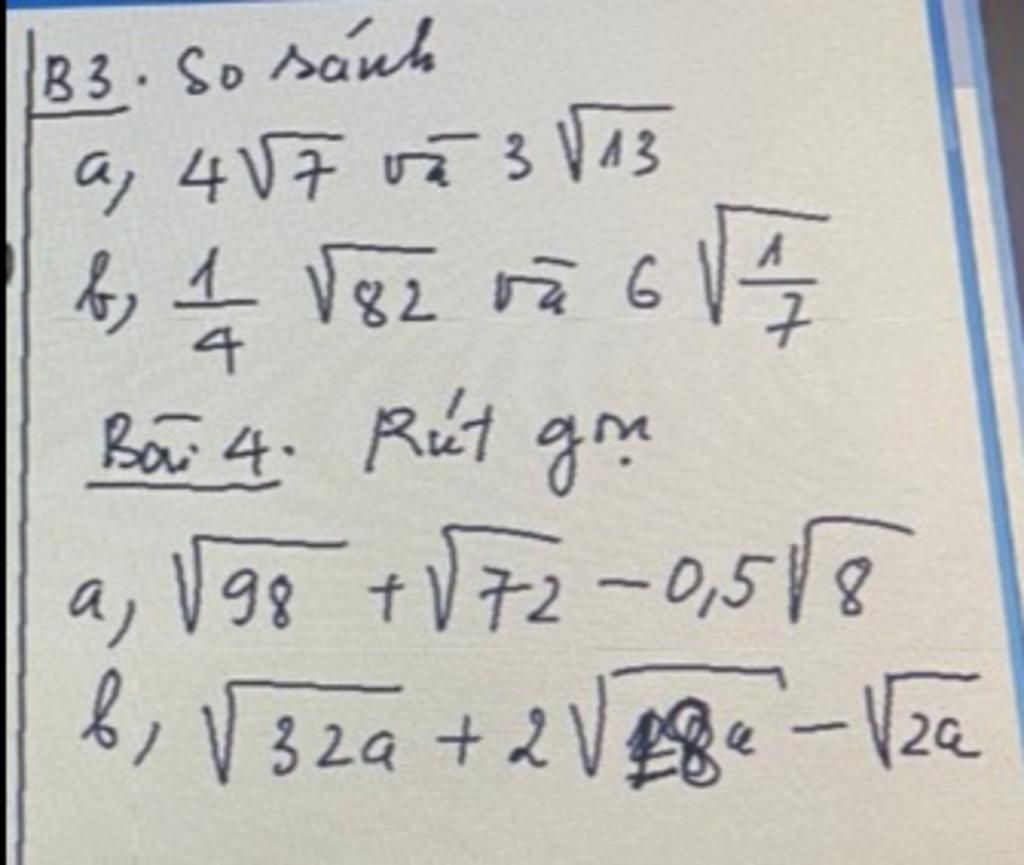 B3. So sánh
a, 4√7 và 3√13
b, 1/4 √82 và 6√(1/7)
Bài 4. Rút gọn
a, √98 + √72 - 0,5√8
b, √32a + 2√18a - √2a